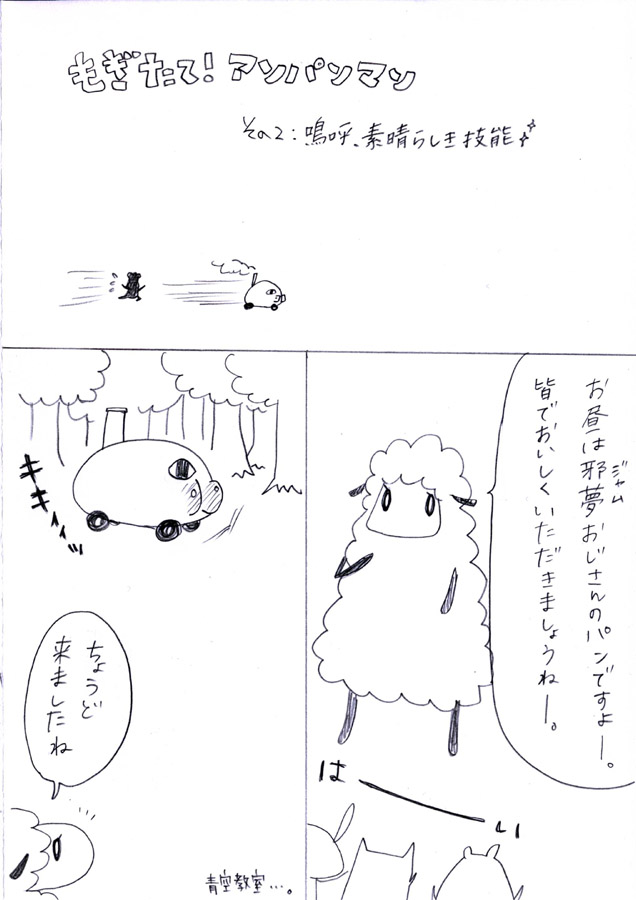 もぎたて!アンパンマン
その2:嗚呼、素晴らしき技能
お昼は邪夢おじさんのパンですよー。
ジャム
皆でおいしくいただきましょうねー。
はーい
青空教室…。
キキィィッ
ちょうど
来ましたね